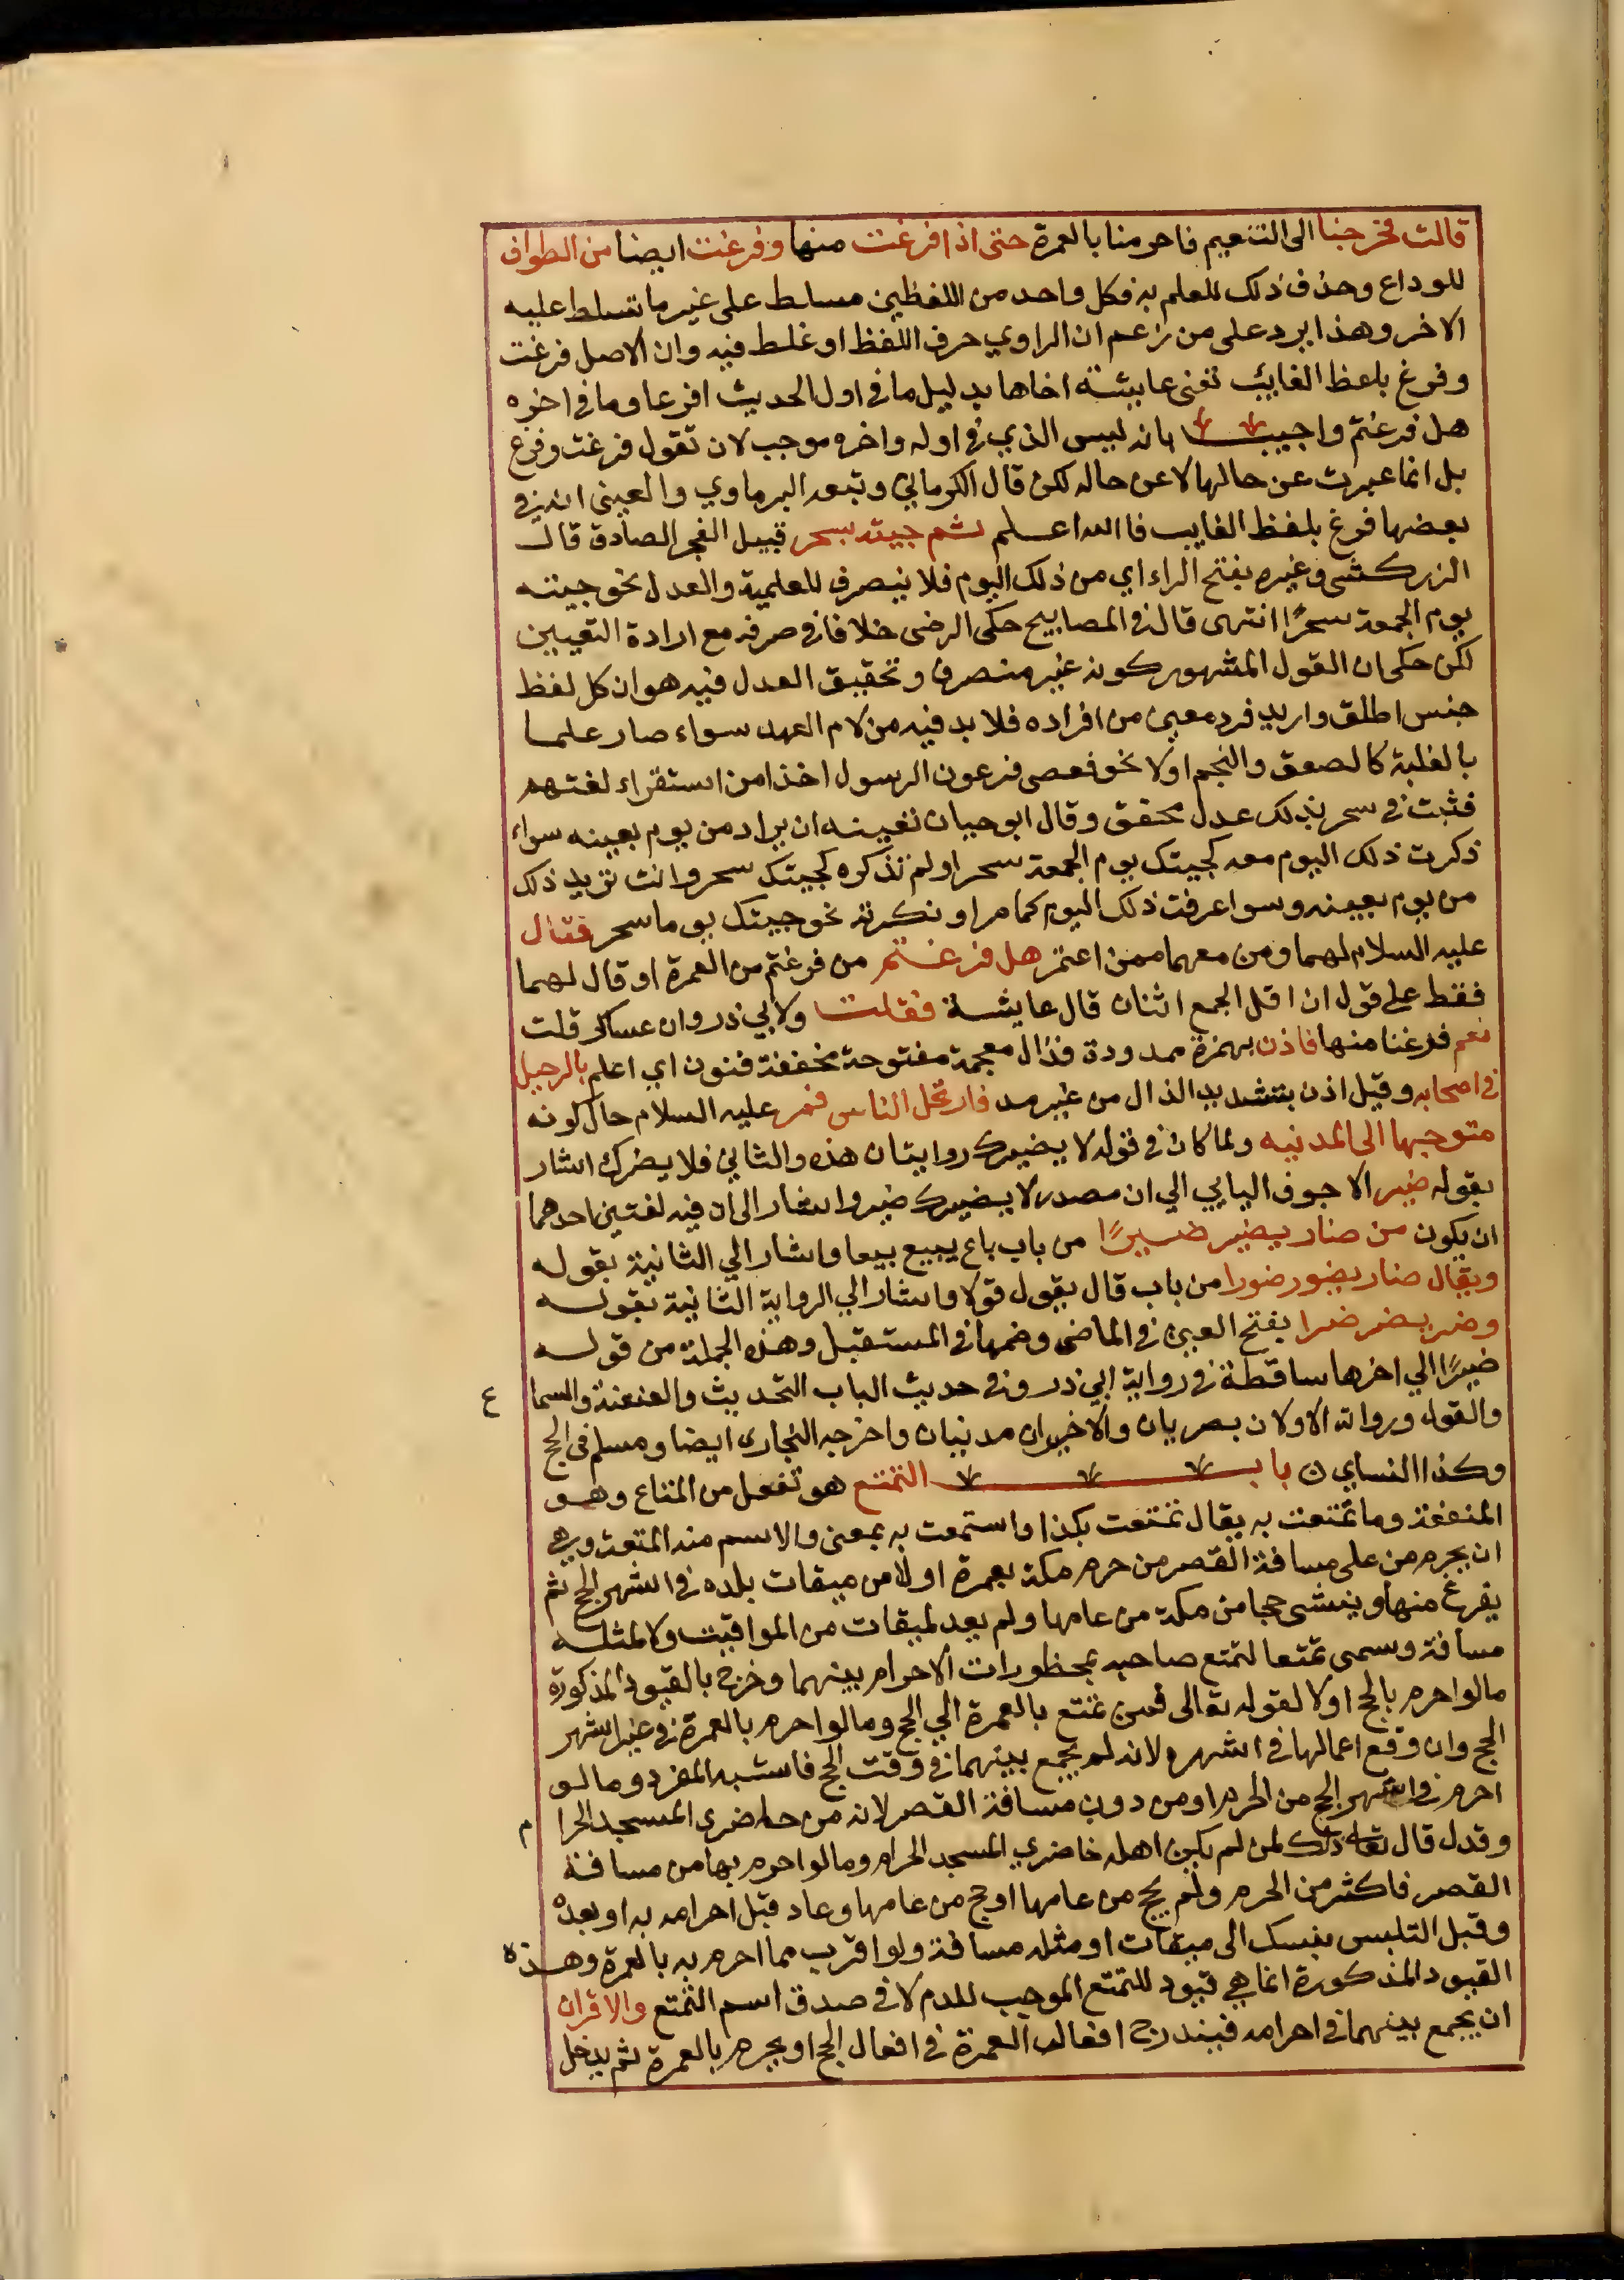 قالت فخرجنا الى التنعيم فاحرمنا بالعمرة حتى اذا فرغت منها وفرغت ايضا من الطواف
للوداع وحذف ذلك للعلم به فكل واحد من اللفظين مسلط على غير ما تسلط عليه
الاخر وهذا يرد على من زعم ان الراوي حرف اللفظ او غلط فيه وان الاصل فرغت
وفرغ بلفظ الغايب تغنى عايشة اخاها بدليل ما في اول الحديث افرغا وما في اخره
هل فرغتم واجيب بانه ليس الذي في اوله واخره موجب لان تقول فرغت وفرغ
بل انما عبرت عن حالها لا عن حاله لكن قال الكرماني وتبعه البرماوي والعيني انه في
بعضها فرغ بلفظ الغايب فالله اعلم ثم جيته بسحر قبيل الفجر الصادق قال
الزركشى وغيره بفتح الراء اي من ذلك اليوم فلا ينصرف للعلمية والعدل نحو جيته
يوم الجمعة سحرًا انتهى قال في المصابيح حكى الرضى خلافا في صرفه مع ارادة التعيين
لكن حكى ان القول المشهور كونه غير منصرف وتحقيق العدل فيه هو ان كل لفظ
جنس اطلق واريد فرد معين من افراده فلا بد فيه من لام العهد سواء صار علما
بالغلبة كالصعق والنجم اولا نحو فعصى فرعون الرسول اخذا من استقراء لغتهم
فثبت في سحر بذلك عدل محقق وقال ابو حيان تعيينه ان يراد من يوم بعينه سواء
ذكرت ذلك اليوم معه كجيتك يوم الجمعة سحر او لم تذكره كجيتك سحر وانت تريد ذلك
من يوم بعينه وسوا عرفت ذلك اليوم كما مر او نكرته نحو جيتك يوما سحر فقال
عليه السلام لهما ومن معهما ممن اعتمر هل فرغتم من فرغتم من العمرة او قال لهما
فقط على قول ان اقل الجمع اثنان قال عايشة فقلت ولابي ذر وابن عساكر قلت
نعم فرغنا منها فاذن بهمزة ممدودة فذال معجمة مفتوحة مخففة فنون اي اعلم بالرحيل
في اصحابه وقيل اذن بتشديد الذال من غير مد فارتحل الناس فمر عليه السلام حال كونه
متوجها الى المدينه ولما كان في قوله لا يضيرك روايتان هذه والثاني فلا يضرك اشار
بقوله ضير الاجوف اليايي الي ان مصدر لا يضيرك ضير واشار الى ان فيه لغتين احدهما
ان يكون من ضار يضير ضيرًا من باب باع يبيع بيعا واشار الي الثانية بقوله
ويقال ضار يضور ضورا من باب قال يقول قولا واشار الي الرواية الثانية بقوله
وضر يضر ضرا بفتح العين في الماضي وضمها في المستقبل وهذه الجملة من قوله
ضيرًا الي اخرها ساقطة في رواية ابي ذر وفي حديث الباب التحديث والعنعنة والسما ع
والقول ورواته الاولان بصريان والاخيران مدنيان واخرجه البخارى ايضا ومسلم في الحج
وكذا النساي ن باب التمتع هو تفعل من المتاع وهو
المنفعة وما تمتعت به يقال تمتعت بكذا واستمتعت به بمعنى والاسم منه المتعة وهي
ان يحرم من على مسافة القصر من حرم مكة بعمرة اولا من ميقات بلده في اشهر الحج ثم
يفرغ منها وينشى حجا من مكة من عامها ولم يعد لميقات من المواقيت ولا لمثله
مسافة وسمى تمتعا لتمتع صاحبه بمحظورات الاحرام بينهما وخرج بالقيود المذكورة
ما لو احرم بالحج اولا لقوله تعالى فمن تمتع بالعمرة الي الحج وما لو احرم بالعمرة في غير اشهر
الحج وان وقع اعمالها في اشهره لانه لم يجمع بينهما في وقت الحج فاشبه المفرد وما لو
احرم في اشهر الحج من الحرم او من دون مسافة القصر لانه من حاضرى المسجد الحرا م
وقد قال تعالى ذلك لمن لم يكن اهله حاضري المسجد الحرام وما لو احرم بها من مسافة
القصر فاكثر من الحرم ولم يحج من عامها او حج من عامها وعاد قبل احرامه به او بعده
وقبل التلبس بنسك الى ميقات او مثله مسافة ولو اقرب مما احرم به بالعمرة وهذه
القيود المذكورة انما هي قيود للتمتع الموجب للدم لا في صدق اسم التمتع والاقران
ان يجمع بينهما في احرامه فيندرج افعال العمرة في افعال الحج او يحرم بالعمرة ثم يدخل